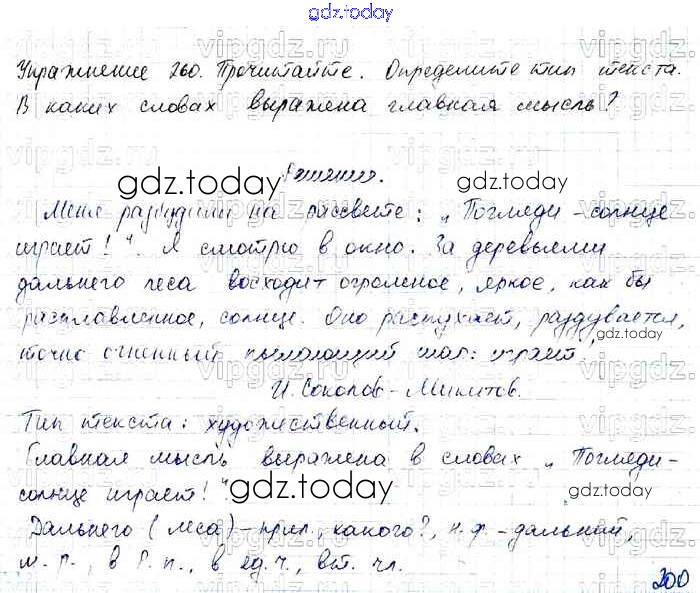 gdz.today
Упражнение 260. Прочитайте. Определите тип текста.
В каких словах выражена главная мысль?
Решение.
gdz.today
gdz.today
Меня разбудили на рассвете: „Погляди-солнце
играет!". Я смотрю в окно. За деревьями
дальнего леса восходит огромное, яркое, как бы
расплавленное, солнце. Оно распухает, раздувается,
gdz.today
точно огненный пылающий шар: играет.
И. Соколов-Микитов.
Тип текста: художественный.
Главная мысль выражена в словах „Погляди-
солнце играет!".
gdz.today
Дальнего (леса)-прил., какого?, н.ф.-дальний,
м.р., в Р.п., в ед.ч., вт. чл.
200